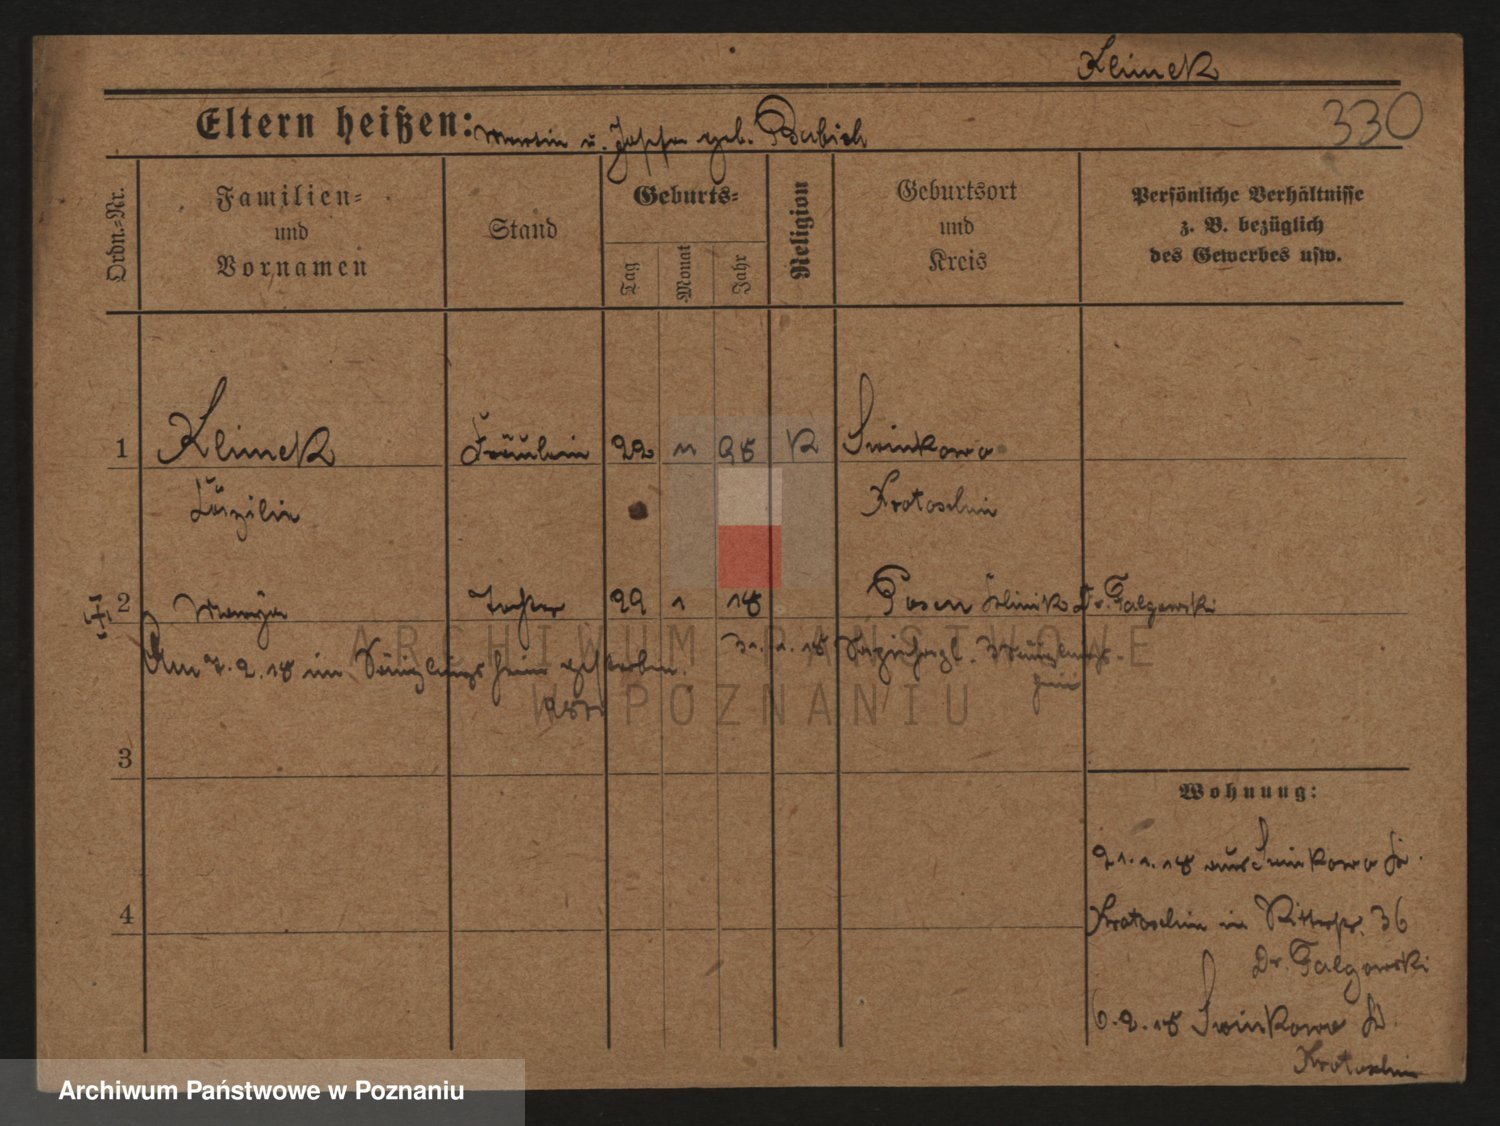 Klimek
330
Eltern heißen: Martin u. Josefa geb. Babich
Ordn.-Nr.
Familien-
und
Vornamen
Stand
Geburts-
Tag
Monat
Jahr
Religion
Geburtsort
und
Kreis
Persönliche Verhältnisse
z. B. bezüglich
des Gewerbes usw.
1 Klimek Fräulein 22 11 95 K Swinkowo
Zäzilie Krotoschin
2 Marya Tochter 22 1 18 Posen Klinik Dr. Falgowski
31.1.18 Säuglings-
heim
Am 7.2.18 im Säuglingsheim gestorben.
3
Wohnung:
21.1.18 aus Swinkowo Kr.
4
Krotoschin in Ritterstr. 36
Dr. Falgowski
6.2.18 Swinkowo Kr.
Krotoschin
ARCHIWUM PAŃSTWOWE
W POZNANIU
Archiwum Państwowe w Poznaniu